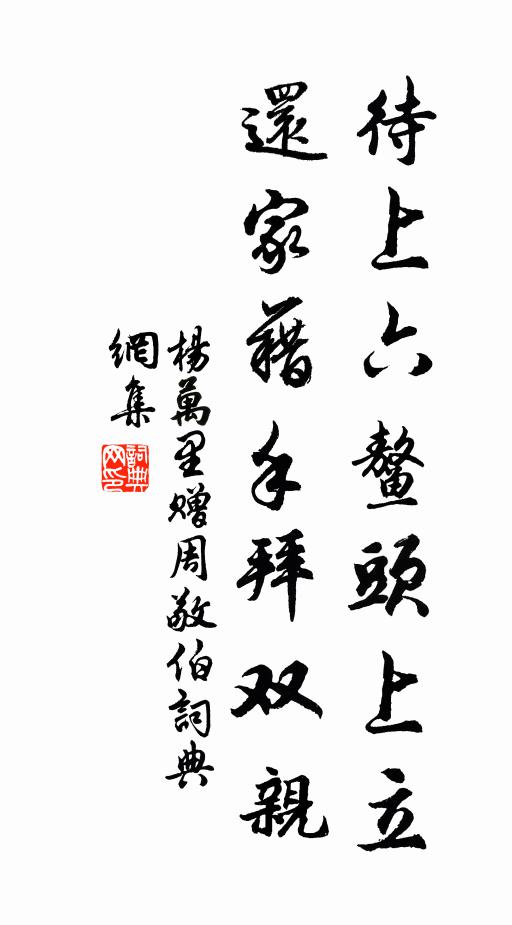 待上六鰲頭上立
還家藉手拜双親
楊萬里贈周敬伯詞典
網集
詞典
网印